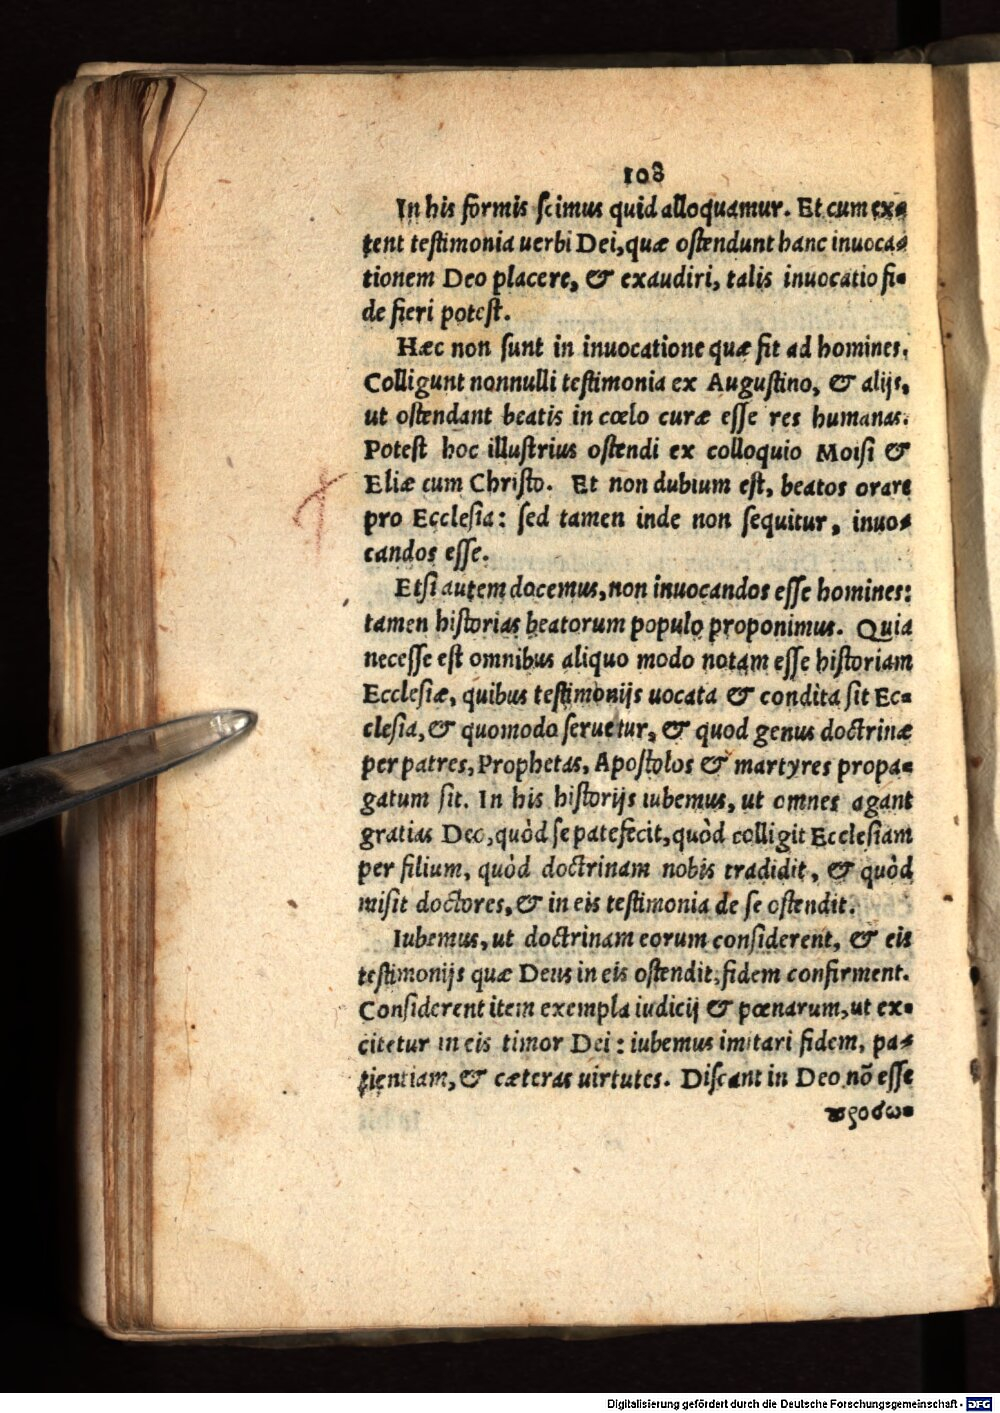 108
In his formis scimus quid alloquamur. Et cum ex-
tent testimonia uerbi Dei, quæ ostendunt hanc inuoca-
tionem Deo placere, & exaudiri, talis inuocatio fi-
de fieri potest.
Hæc non sunt in inuocatione quæ fit ad homines.
Colligunt nonnulli testimonia ex Augustino, & alijs,
ut ostendant beatis in cœlo curæ esse res humanas.
Potest hoc illustrius ostendi ex colloquio Moisi &
Eliæ cum Christo. Et non dubium est, beatos orare
pro Ecclesia: sed tamen inde non sequitur, inuo-
candos esse.
Etsi autem docemus, non inuocandos esse homines:
tamen historias beatorum populo proponimus. Quia
necesse est omnibus aliquo modo notam esse historiam
Ecclesiæ, quibus testimonijs uocata & condita sit Ec-
clesia, & quomodo seruetur, & quod genus doctrinæ
per patres, Prophetas, Apostolos & martyres propa-
gatum sit. In his historijs iubemus, ut omnes agant
gratias Deo, quòd se patefecit, quòd colligit Ecclesiam
per filium, quòd doctrinam nobis tradidit, & quòd
misit doctores, & in eis testimonia de se ostendit.
Iubemus, ut doctrinam eorum considerent, & eis
testimonijs quæ Deus in eis ostendit, fidem confirment.
Considerent item exempla iudicij & pœnarum, ut ex-
citetur in eis timor Dei: iubemus imitari fidem, pa-
tientiam, & cæteras uirtutes. Discant in Deo nõ esse
προσω-
Digitalisierung gefördert durch die Deutsche Forschungsgemeinschaft - DFG